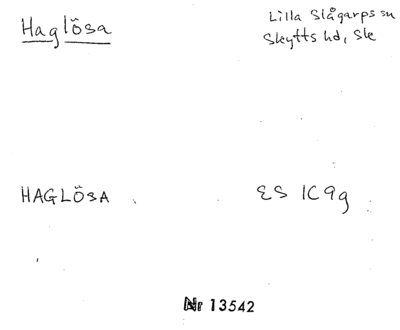 Haglösa
Lilla Slågarps sn
Skytts hd, Sk
HAGLÖSA
ES 1C9g
Nr 13542